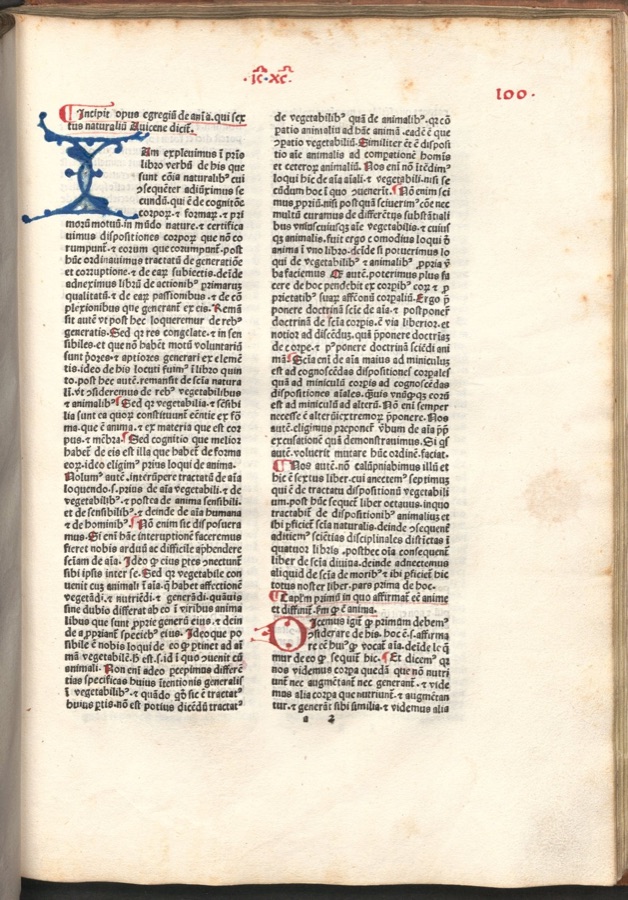 ·jc·xc·
100·
¶ Incipit opus egregiū de aīa. qui sex
tus naturaliū Auicene dicit̄.
Am expleuimus ī prīo
libro verbū de his que
sunt cōia naturalibꝰ cui
ꝯsequēter adiūximus se
cundū. qui ē de cognitōe
corpoꝝ. ⁊ formaꝝ. ⁊ pri
morū motuū. in mūdo nature. ⁊ certifica
uimus dispositiones corpoꝝ que nō co
rumpunt̄. ⁊ eorum que corumpunt̄. post
hūc ordinauimus tractatū de generatiōe
et corruptione. ⁊ de eaꝝ subiectis. deīde
adneximus librū de actionibꝰ primaruꝫ
qualitatū. ⁊ de eaꝝ passionibus. ⁊ de cō
plexionibus que generant̄ ex eis. Remā
sit autē vt post hec loqueremur de rebꝰ
generatis. Sed qꝛ res congelate. ⁊ in sen
sibiles. et que nō habēt motū voluntariū
sunt p̄ores. ⁊ aptiores generari ex elemē
tis. ideo de his locuti fuimꝰ ī libro quin
to. post hec autē. remansit de scīa natura
li. vt ꝯsideremus de rebꝰ vegetabilibus
⁊ animalibꝰ. ¶ Sed qꝛ vegetabilia. ⁊ sēsibi
lia sunt ea quoꝝ constituunt̄ eēntie ex fō
ma. que ē anima. ⁊ ex materia que est cor
pus. ⁊ mēbra. ¶ Sed cognitio que melior
habet̄ de eis est illa que habet̄ de forma
eoꝝ. ideo eligimꝰ prius loqui de anima.
Nolumꝰ autē. interūpere tractatū de aīa
loquendo. s. prius de aīa vegetabili. ⁊ de
vegetabilibꝰ. ⁊ postea de anima sensibili.
et de sensibilibꝰ. ⁊ deinde de aīa humana
⁊ de hominibꝰ. ¶ Nō enim sic disposuera
mus. Si enī hāc interuptionē faceremus
fieret nobis arduū ac difficile app̄hendere
scīam de aīa. Ideo ꝙ eius p̄tes ꝯnectunt̄
sibi ipsis inter se. Sed qꝛ vegetabile con
uenit cuꝫ animali ī aīa. q̄ habet affectionē
vegetādi. ⁊ nutriēdi. ⁊ generādi. quāuis
sine dubio differat ab eo ī viribus anima
libus que sunt ꝓprie generū eius. ⁊ dein
de appriant̄ speciebꝰ eius. Ideoque po
sibile ē nobis loqui de eo ꝙ ꝑtinet ad aī
mā vegetabilē. h̄ est. s. id ī quo ꝯuenit cū
animali. Non enī adeo ꝑcepimus differē
tias specificas huius ītentionis generalis
ī vegetabilibꝰ. ⁊ quādo ꝙ sic ē tractatꝰ
huius ꝑtis. nō est potius dicēdū tractatꝰ
de vegetabilibꝰ quā de animalibꝰ. qꝛ cō
patio animaliū ad hāc animā. eadē ē que
ꝯpatio vegetabiliū. Similiter ēt ē disposi
tio aīe animalis ad compationē homīs
et ceteroꝝ animaliū. Nos enī nō ītēdimꝰ
loqui hic de aīa aīali. ⁊ vegetabili. nisi se
cūdum hoc ī quo ꝯuenerīt. ¶ Nō enim sci
mus ꝓpriū. nisi postquā sciuerimꝰ cōe nec
multū curamus de differētijs substātiali
bus vniuscuiusqꝫ aīe vegetabilis. ⁊ cuius
qꝫ animalis. fuit ergo cōmodius loqui ð
anima ī vno libro. deīde si potuerimus lo
qui de vegetabilibꝰ ⁊ animalibꝰ ꝓpria v̄
ba faciemus. Qꝭ autē. poterimus plus fa
cere de hoc pendebit ex corpibꝰ eoꝝ ⁊ ꝓ
prietatibꝰ suaꝝ affcōnū corpaliū. Ergo p̄
ponere doctrinā scīe de aīa. ⁊ postponeř
doctrinā de scīa corpis. ē via libertior. et
notior ad discēduꝫ. quā p̄ponere doctrīaꝫ
de corpe. ⁊ p̄ ponere doctrinā sciēdi ani
mā ¶ Scīa enī de aīa maius ad miniculuꝫ
est ad cognoscēdas dispositiones corpales
quā ad miniculū corpis ad cognoscēdas
dispositiones aīales. quīs vnūqꝫqꝫ eoꝝ
est ad miniculū ad alterū. Nō enī semper
necesse ē alterū extremoꝝ p̄ponere. Nos
autē. eligimus preponeř v̄bum de aīa pp̄
excusationē quā demonstrauimus. Si qs
autē. voluerit mutare hūc ordinē. faciat.
¶ Nos autē. nō calūpniabimus illū et
hic ē sextus liber. cui annectemꝰ septimuꝫ
qui ē de tractatu dispositionū vegetabili
um. post huc sequet̄ liber octauus. in quo
tractabit̄ de dispositionibꝰ animaliuꝫ et
ibi ꝑficiet̄ scīa naturalis. deinde ꝯsequent̄
aditiemꝰ sciētias disciplinales distictas ī
quatuor libris. posthec oīa consequent̄
liber de scīa diuina. deinde adnectemus
aliquid de scīa de moribꝰ. ⁊ ibi ꝑficiet̄ hic
totus noster liber. pars prima de hoc.
¶ Cap̄lm primū in quo affirmat̄ eē anime
et diffinit̄. s̄m ꝙ ē anima.
Icemus igit̄ ꝙ primum debemꝰ
ꝯsiderare de his. hoc ē. s. affirma
re eē huiꝰ ꝙ vocat̄ aīa. deīde loq̄
mur de eo ꝙ sequit̄ hic. ¶ Et dicemꝰ qꝛ
nos videmus corpa quedā que nō nutri
unt̄ nec augmētant̄ nec generant̄. ⁊ vide
mus alia corpa que nutriunt̄. ⁊ augmētan
tur. ⁊ generāt sibi similia. ⁊ videmus alia
a 2